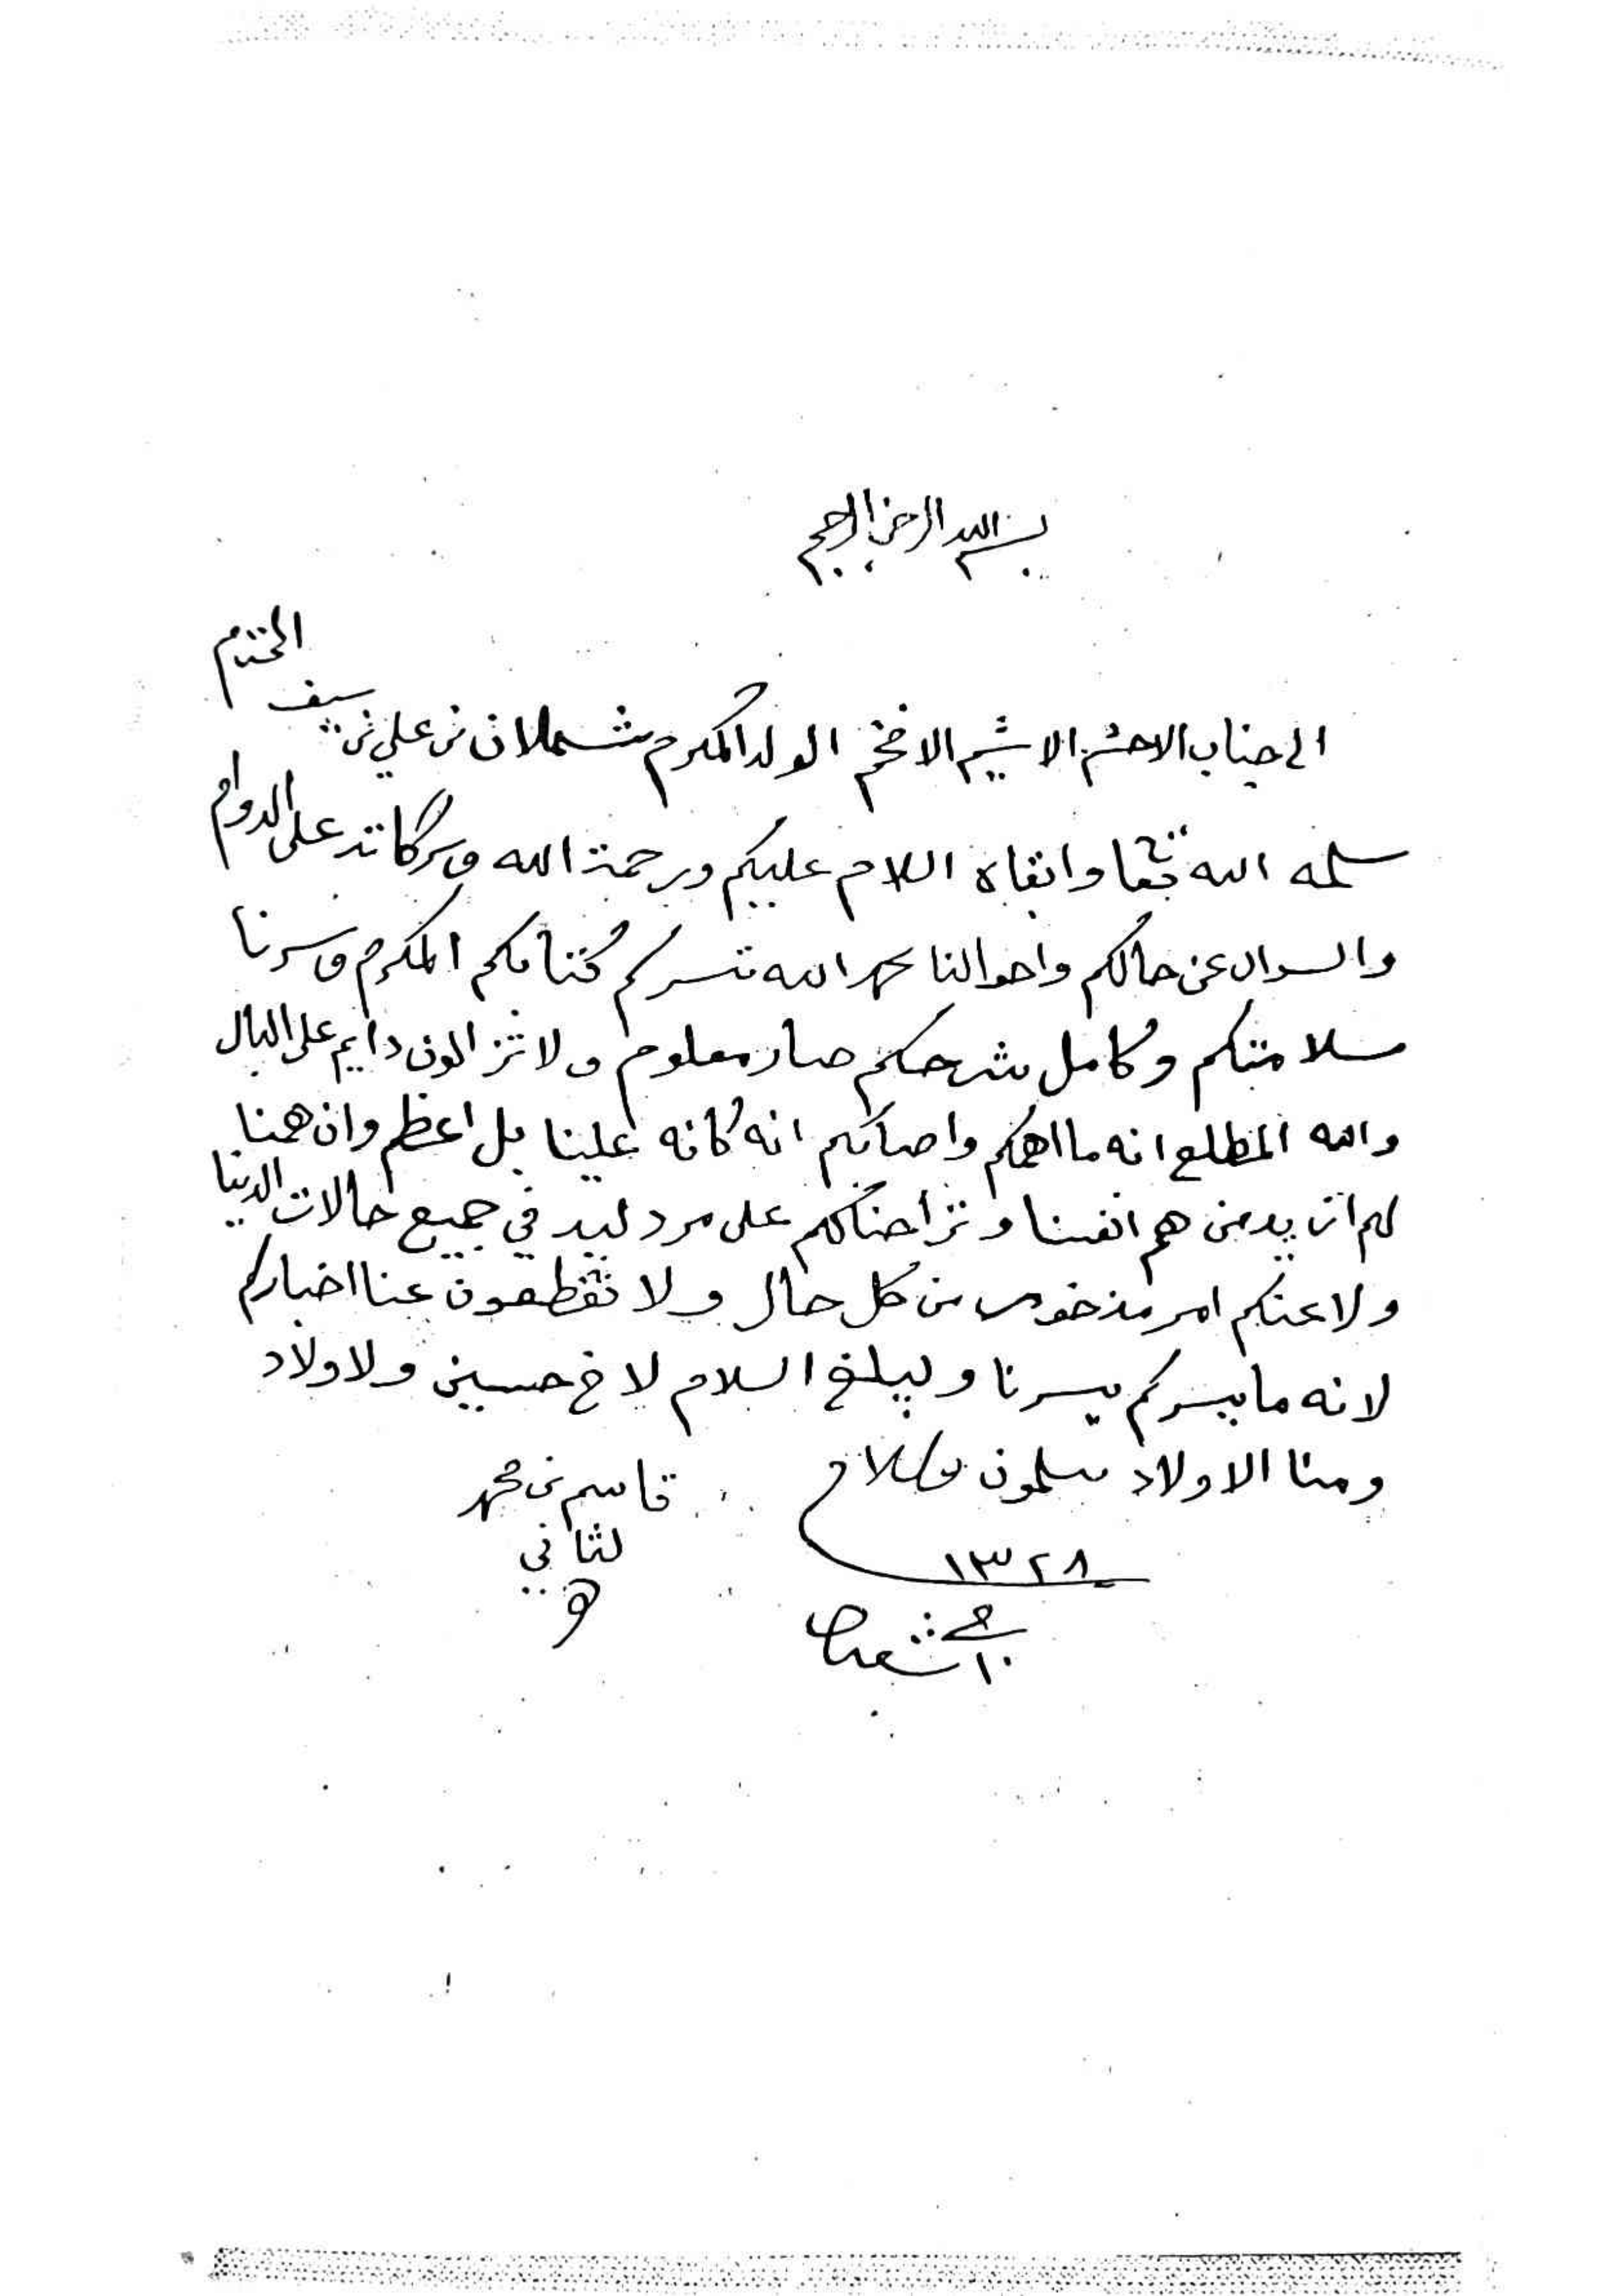 بسم الله الرحمن الرحيم
الى جناب الاحشم الاشيم الافخم الولد المكرم شملان بن علي بن سيف المحترم
سلمه الله تعا وابقاه السلام عليكم ورحمة الله وبركاته على الدوام
والسوال عن حالكم واحوالنا بحمد الله تسركم كتابكم المكرم وسرنا
سلامتكم وكامل شرحكم صار معلوم ولا تزالون دايم على البال
والله المطلع انه ما اهمكم واصابكم انه كانه علينا بل اعظم وان همنا
لهم ازيد من هم انفسنا و على في جميع حالات الدنيا
ولا عنكم امر من كل حال ولا تقطعون عنا اخباركم
لانه ما يسركم يسرنا وليبلغ السلام لاخ حسين ولاولاد
ومنا الاولاد يسلمون والسلام
قاسم بن محمد
الثاني
١٣٢٨
١٠ شعبان